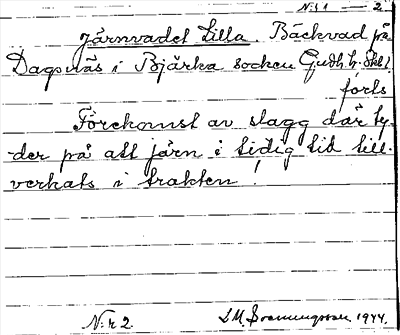 Nr 1 — 2.
Järnvadet Lilla. Bäckvad på
Dagsnäs i Bjärka socken Gudh. h. Skbl.
forts
Förekomst av slagg där ty-
der på att järn i tidig tid till-
verkats i trakten!
Nr 2. LM. 1944.